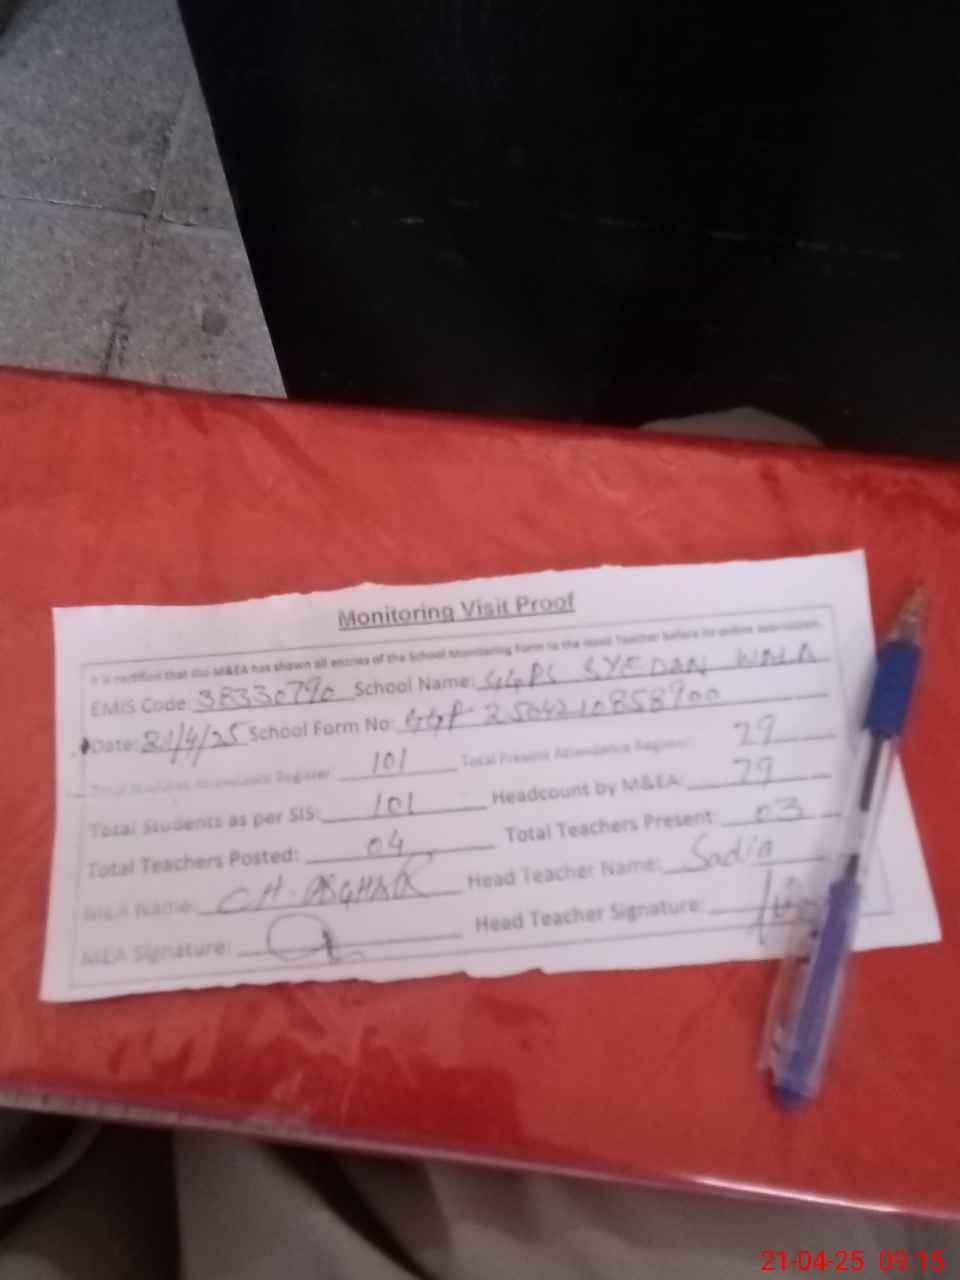 Monitoring Visit Proof
It is certified that the M&EA has shown all entries of the School Monitoring Form to the Head Teacher before its online submission.
EMIS Code: 38330790 School Name: GGPS SYEDAN WALA
Date: 21/4/25 School Form No: GGP 2504210858900
Total Students Attendance Register: 101 Total Present Attendance Register: 79
Total Students as per SIS: 101 Headcount by M&EA: 79
Total Teachers Posted: 04 Total Teachers Present: 03
MEA Name: CH. ASGHAR Head Teacher Name: Sadia
MEA Signature: Head Teacher Signature:
21-04-25 09:15